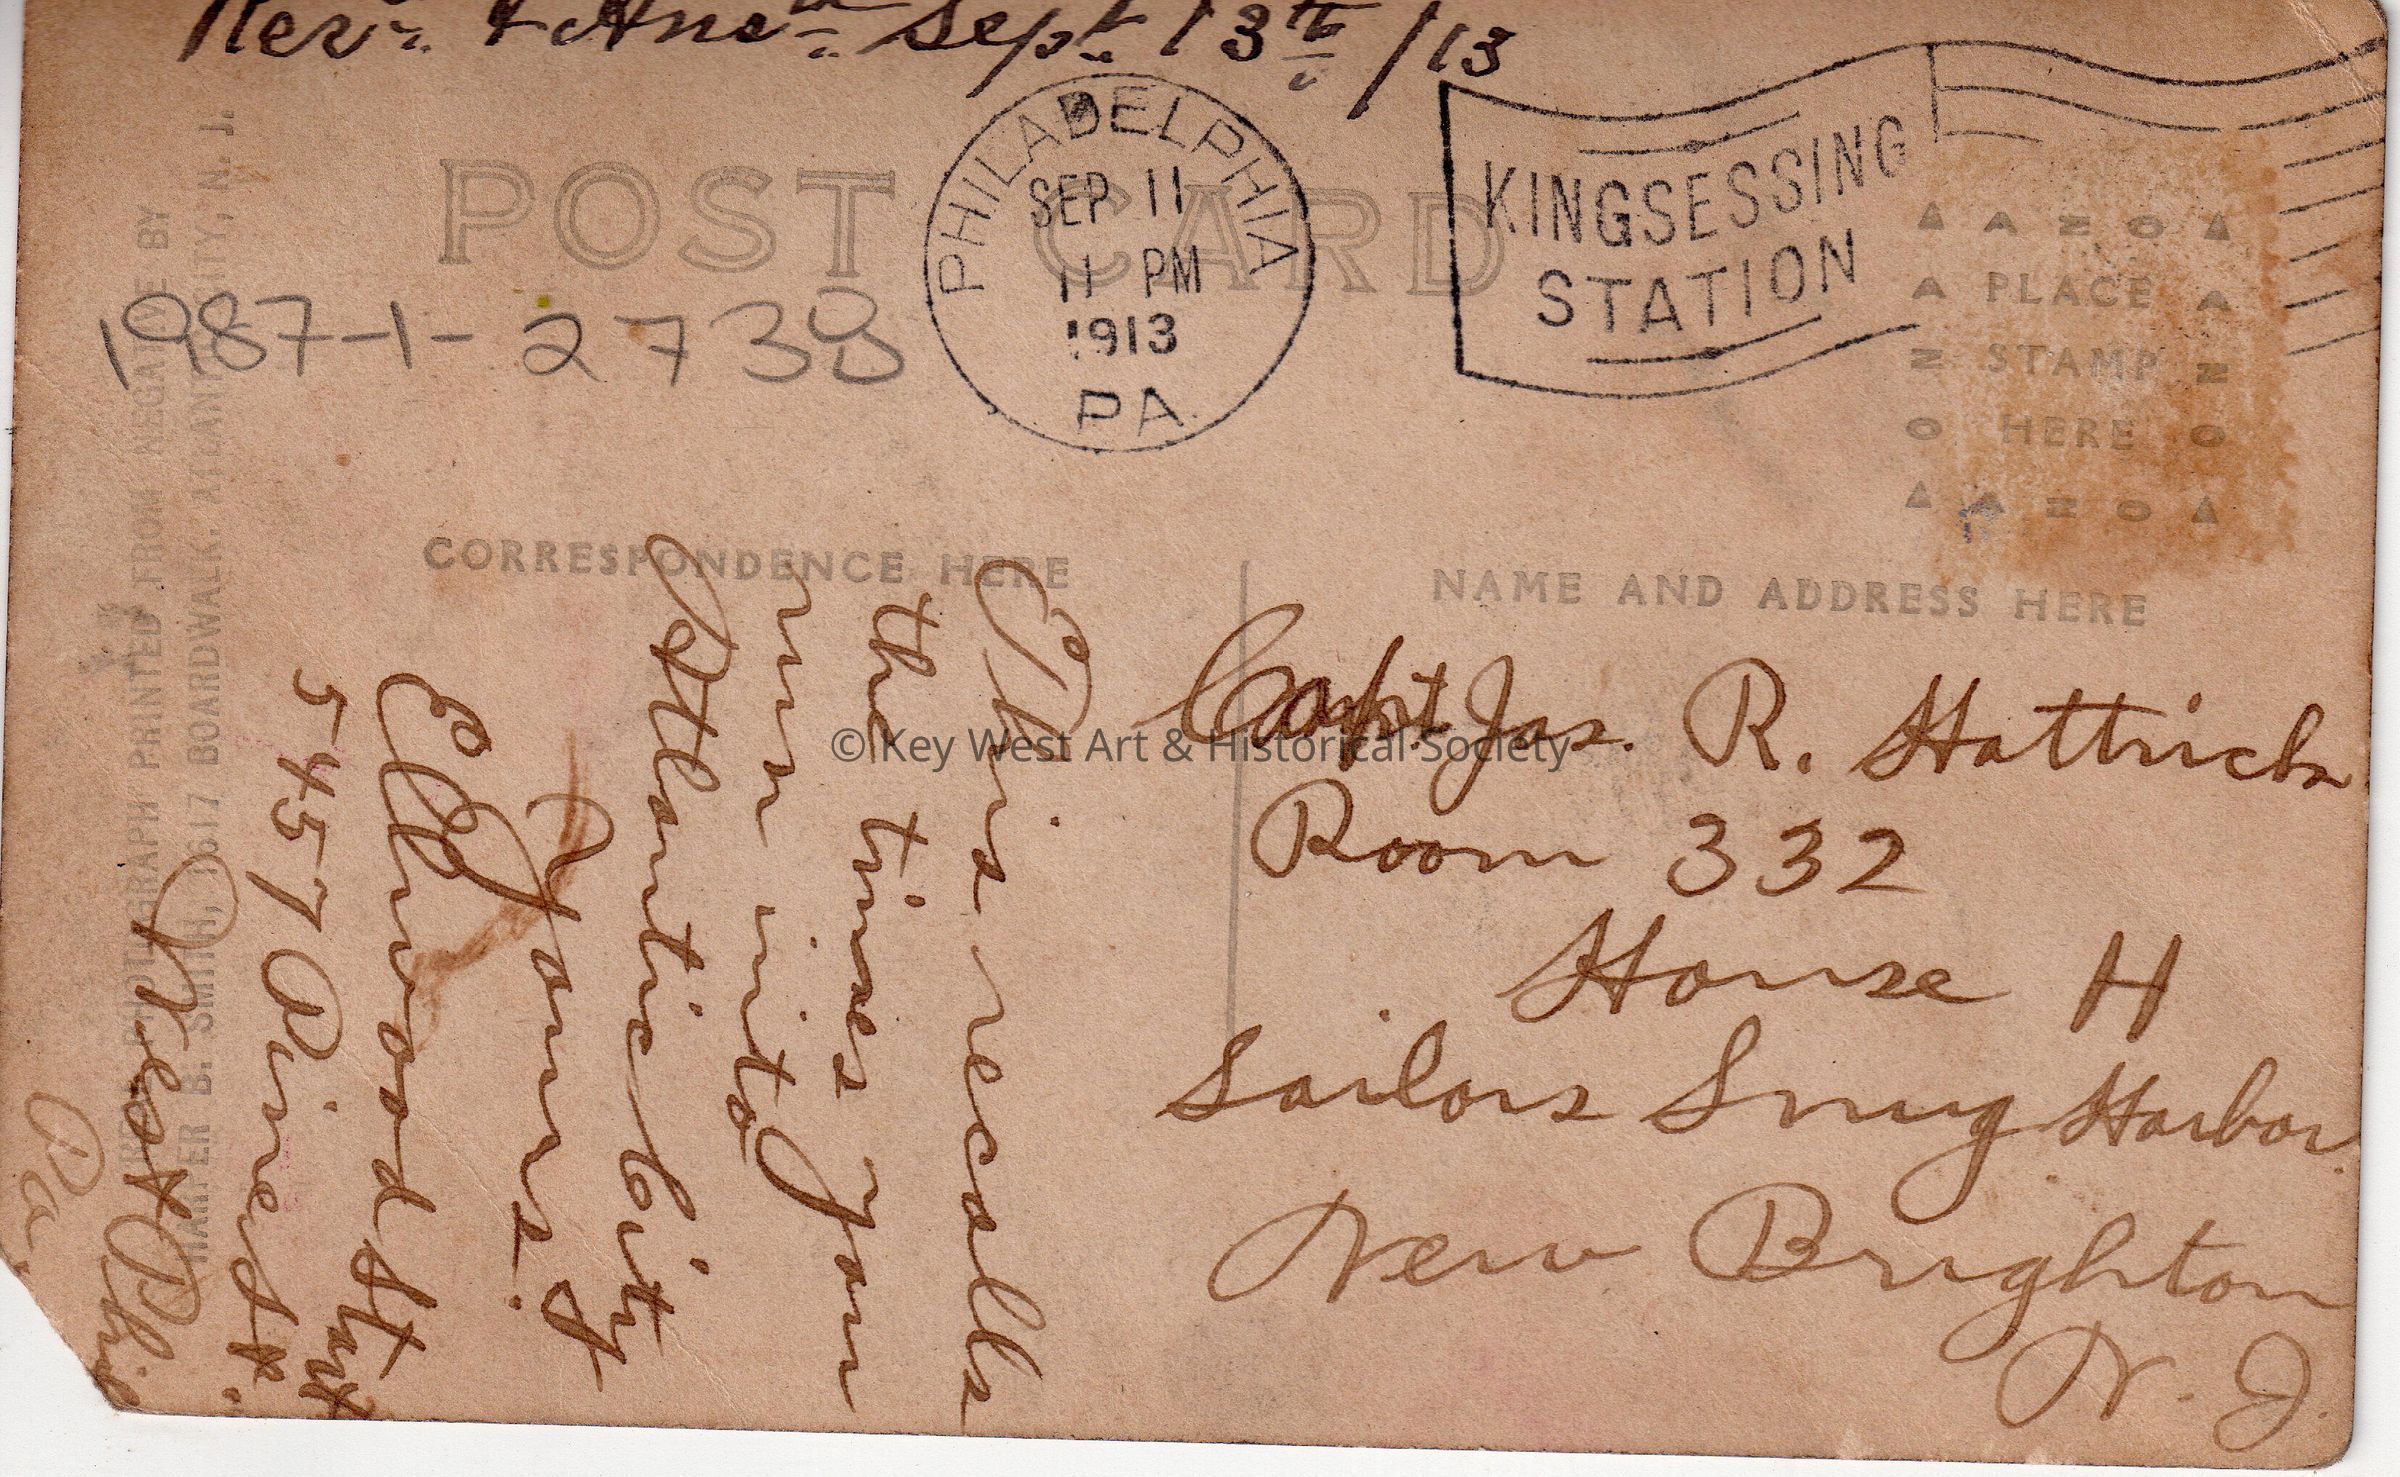 Recv. & Ansd. Sept. 13th /13
POST CARD
PHILADELPHIA
SEP 11
11 PM
1913
PA.
KINGSESSING
STATION
1987-1-2738
AZO
PLACE
STAMP
HERE
AZO
CORRESPONDENCE HERE
NAME AND ADDRESS HERE
This recalls
the times you
run into
Atlantic City
Yours.
Ellwood Stout
5457 Pine St.
West Phil
Pa.
Capt. Jas. R. Hattrick
Room 332
House H
Sailors Snug Harbor
New Brighton
N. J.
PHOTOGRAPH PRINTED FROM NEGATIVE BY
HARPER B. SMITH, 1617 BOARDWALK, ATLANTIC CITY, N. J.
© Key West Art & Historical Society